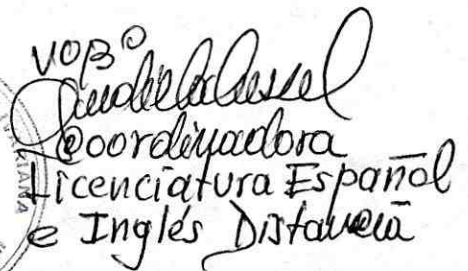 VOBº
Coordinadora
Licenciatura Español
e Inglés Distancia